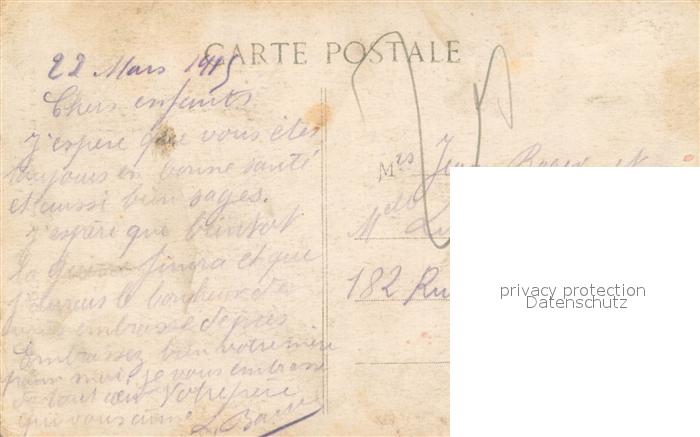 CARTE POSTALE
22 Mars 1915
Chers enfants
J'espère que vous êtes
toujours en bonne santé
et aussi bien sages.
J'espère que bientot
la guerre finira et que
j'aurais le bonheur de
vous embrasse depuis
Embrassez bien votre mère
pour moi, je vous embrasse
de tout cœur Votre père
qui vous aime
Mrs Jean et
Melle
182 Ru
privacy protection
Datenschutz